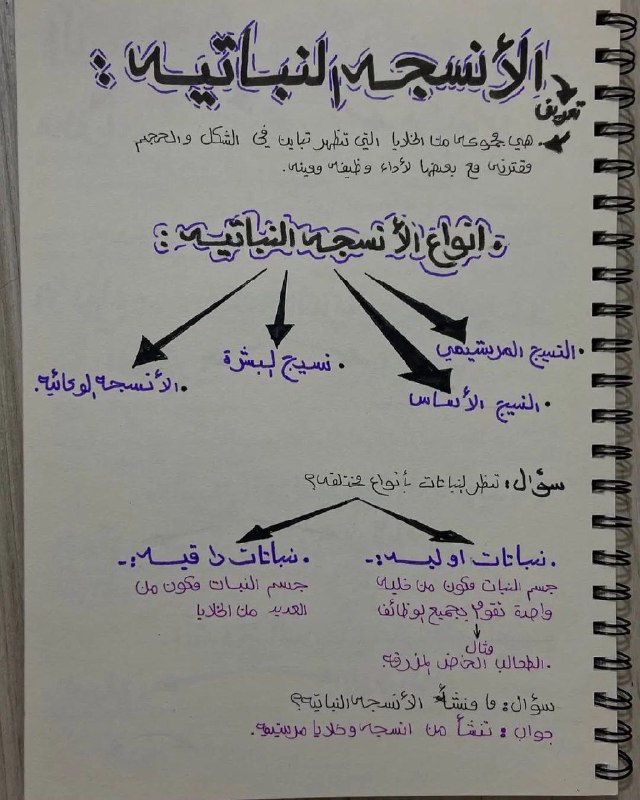 الأنسجه النباتيه :
تعريف
هي مجموعه من الخلايا التي تظهر تباين في الشكل والحجم
وقترنه مع بعضها لأداء وظيفه معينه.
. انواع الأنسجه النباتيه :
. النسيج المرستيمي
. النسيج الأساس
. نسيج البشرة
. الأنسجه الوعائيه.
سؤال: تظهر النباتات بأنواع مختلفه؟
. نباتات اوليه :-
جسم النبات مكون من خليه
واحدة تقوم بجميع الوظائف
مثال
. الطحالب الخضر المزرقه.
. نباتات راقيه :-
جسم النبات مكون من
العديد من الخلايا
سؤال: ما منشأ الأنسجه النباتيه؟
جواب: تنشأ من انسجه وخلايا مرستيميه.